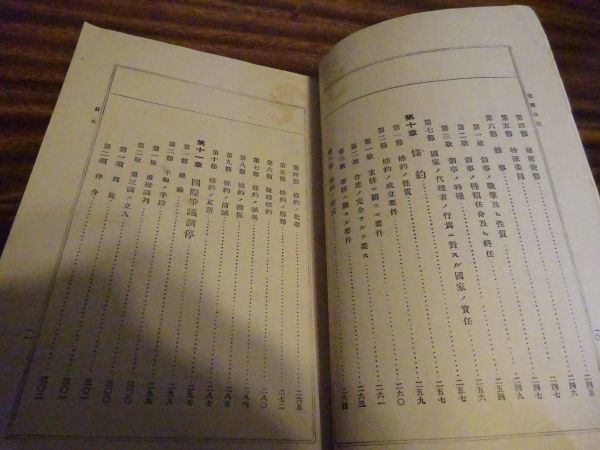 第四節 秘密使節 二四五
第五節 特派委員 二四六
第六節 領事 二四七
第一欵 領事ノ職業及ヒ性質 二四七
第二欵 領事ノ種類任命及ヒ終任 二四九
第三欵 領事ノ特權 二五六
第七節 國家ノ代理者ノ行爲ニ對スル國家ノ責任 二五七
第十章 條約 二五九
第一節 條約ノ性質
第二節 條約ノ成立要件 二六〇
第一欵 主格ニ關スル要件 二六一
第二欵 合意ノ完全ナルヲ要ス 二六三
第三欵 ニ關スル要件 二六四
第四節 條約ノ批准 二六五
第五節 條約ノ解釋 二七二
第六節 保證條約 二八〇
第七節 條約ノ効果 二八四
第八節 條約ノ擔保 二八五
第九節 條約ノ消滅 二八七
第十節 條約ノ更新 二九七
第十一章 國際爭議調停
第一節 總論 二九五
第二節 平和ノ手段 二九九
第一欵 直接談判 三〇〇
第二欵 第三國ノ立入 三〇〇
第一項 周旋 三〇一
第二項 仲介 三〇二
目次